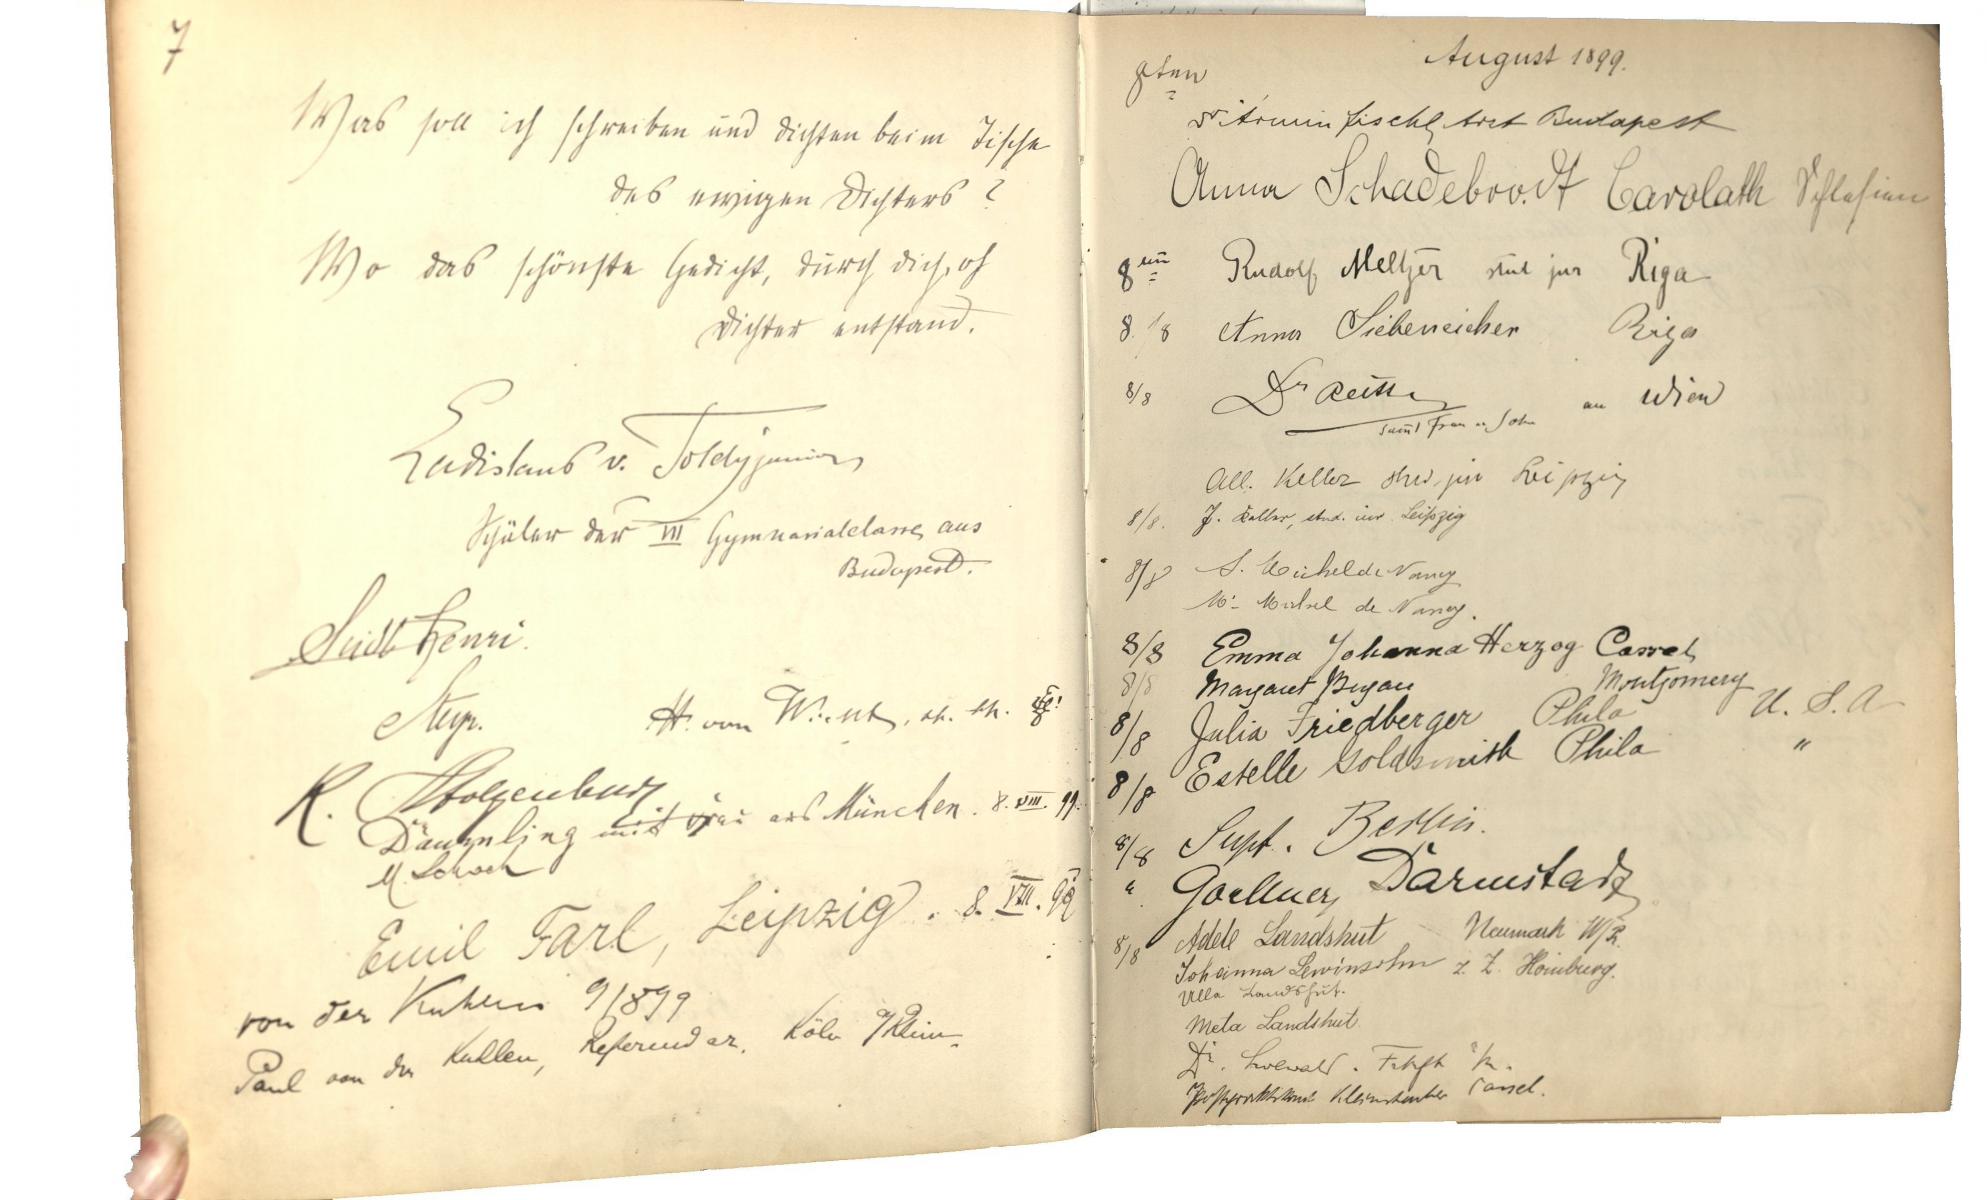 7
Was soll ich schreiben und dichten beim Tische
des ewigen Dichters?
Wo das schönste Gedicht, durch dich, oh
Dichter entstand.
Ladislaus v. Toldy junior
Schüler der VII Gymnasialclasse aus
Budapest.
Seidl Henri.
Steyr.
H. von
R. Stolzenburg
Däumling mit Frau aus München. 8. VIII. 99.
M
Emil Farl, Leipzig. 8. VIII. 99
von der Kuhlen 9/8 99
Paul von der Kuhlen, Referendar. Köln a/Rhein
August 1899.
8ten
Dr Armin Fischl, Arzt Budapest
Anna Schadebrodt Carolath Schlesien
8ten Rudolf Meltzer stud jur Riga
8/8 Anna Siebeneicher Riga
8/8 Dr aus Wien
samt Frau u. Sohn
All. Keller stud. jur Leipzig
8/8. J. Keller, stud. iur. Leipzig
8/8 S. Michel de Nancy
Me Michel de Nancy.
8/8 Emma Johanna Herzog Cassel
8/8 Margaret Bryan Montgomery
8/8 Julia Friedberger Phila U. S. A
8/8 Estelle Goldsmith Phila "
8/8 Supf. Berlin.
" Goellner, Darmstadt
8/8 Adele Landshut Neumark W/Pr.
Johanna Lewinsohn z. Z. Homburg.
Ulla Landshut.
Meta Landshut
Dr. Frkft a/M.
Postpraktikant Cassel.